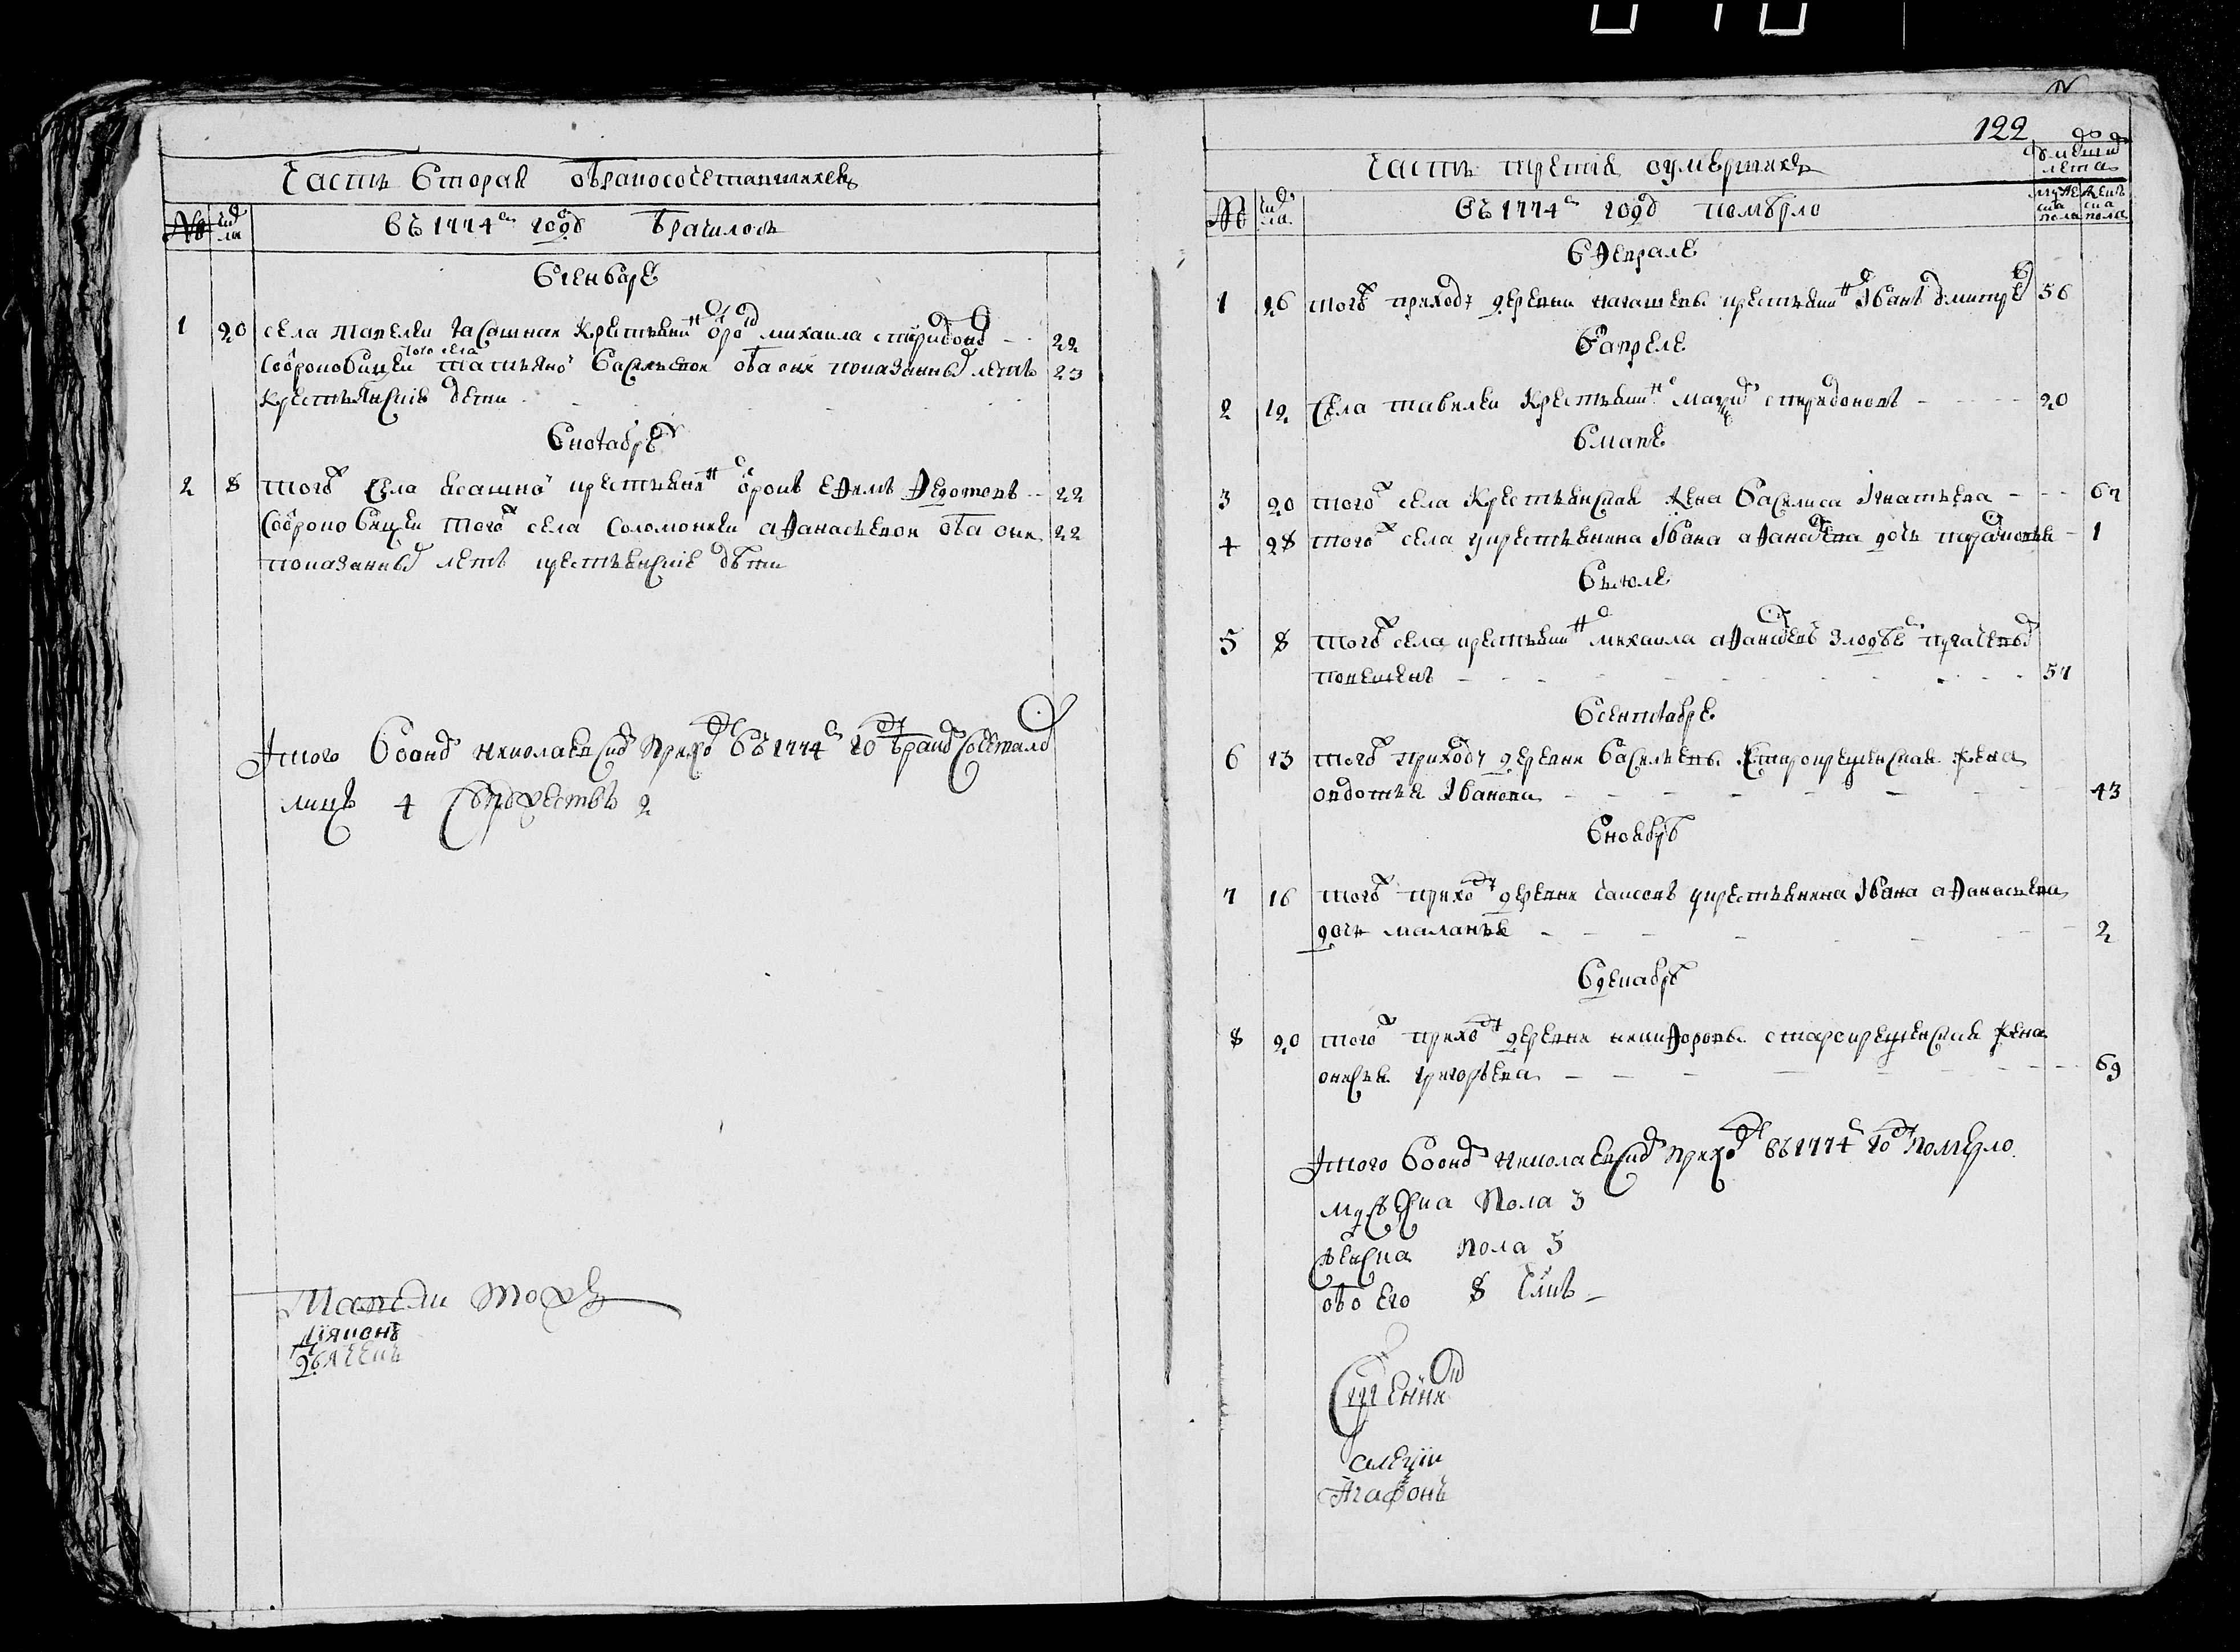 Часть вторая о бракосочетавшихся
№ числа
въ 1774м году брачилось
в генваре
1 20 села Тавели ясашная крестьянин отрок Михаила Спиридонов 22
того села
совокуповицеи Татьяной Васильевой оба они показанных летъ 23
крестьянские дети
в ноябре
2 8 того ж села ясашной крестьянин отрокъ Ефимъ Федотовъ 22
того ж села Соломонией Афанасьевой оба они 22
показанных летъ крестьянские дѣти
Итого в оном Николаевском приходе въ 1774м году браком сочеталось
лицъ 4 супружествъ 2
Тавели тож
диякон
Двяеси
122
Часть третия о умерших
коликих до лета
№ числа
въ 1774м году помѣрло
мужеска пола
женска пола
в феврале
1 26 того ж приходу деревни крестьянин Иванъ Дмитрев 56
в апреле
2 12 села Тавели крестьянин Спиридоновъ 20
в мае
3 20 того ж села крестьянская жена Василиса Игнатьева 67
4 28 того ж села у крестьянина Ивана Афанасева дочь 1
в июле
5 8 того ж села крестьянин Михаила Афанасевъ злодѣе Пугачевым
повешенъ 57
в сентябре
6 13 того ж приходу деревни Васильевы старокрещенская жена
Овдотья Иванова 43
в ноябрѣ
7 16 того ж приходу деревни у крестьянина Ивана Афанасьева
дочь Маланья 2
в декабрѣ
8 20 того ж приходу деревни Никифоровы старокрещенская жена
Онисья Григорьева 69
Итого в оном Николаевском приходе въ 1774м году померло
мужеска пола 3
женска пола 5
обоего 8 члвкъ
Сщенник
Алексии
Агафонъ